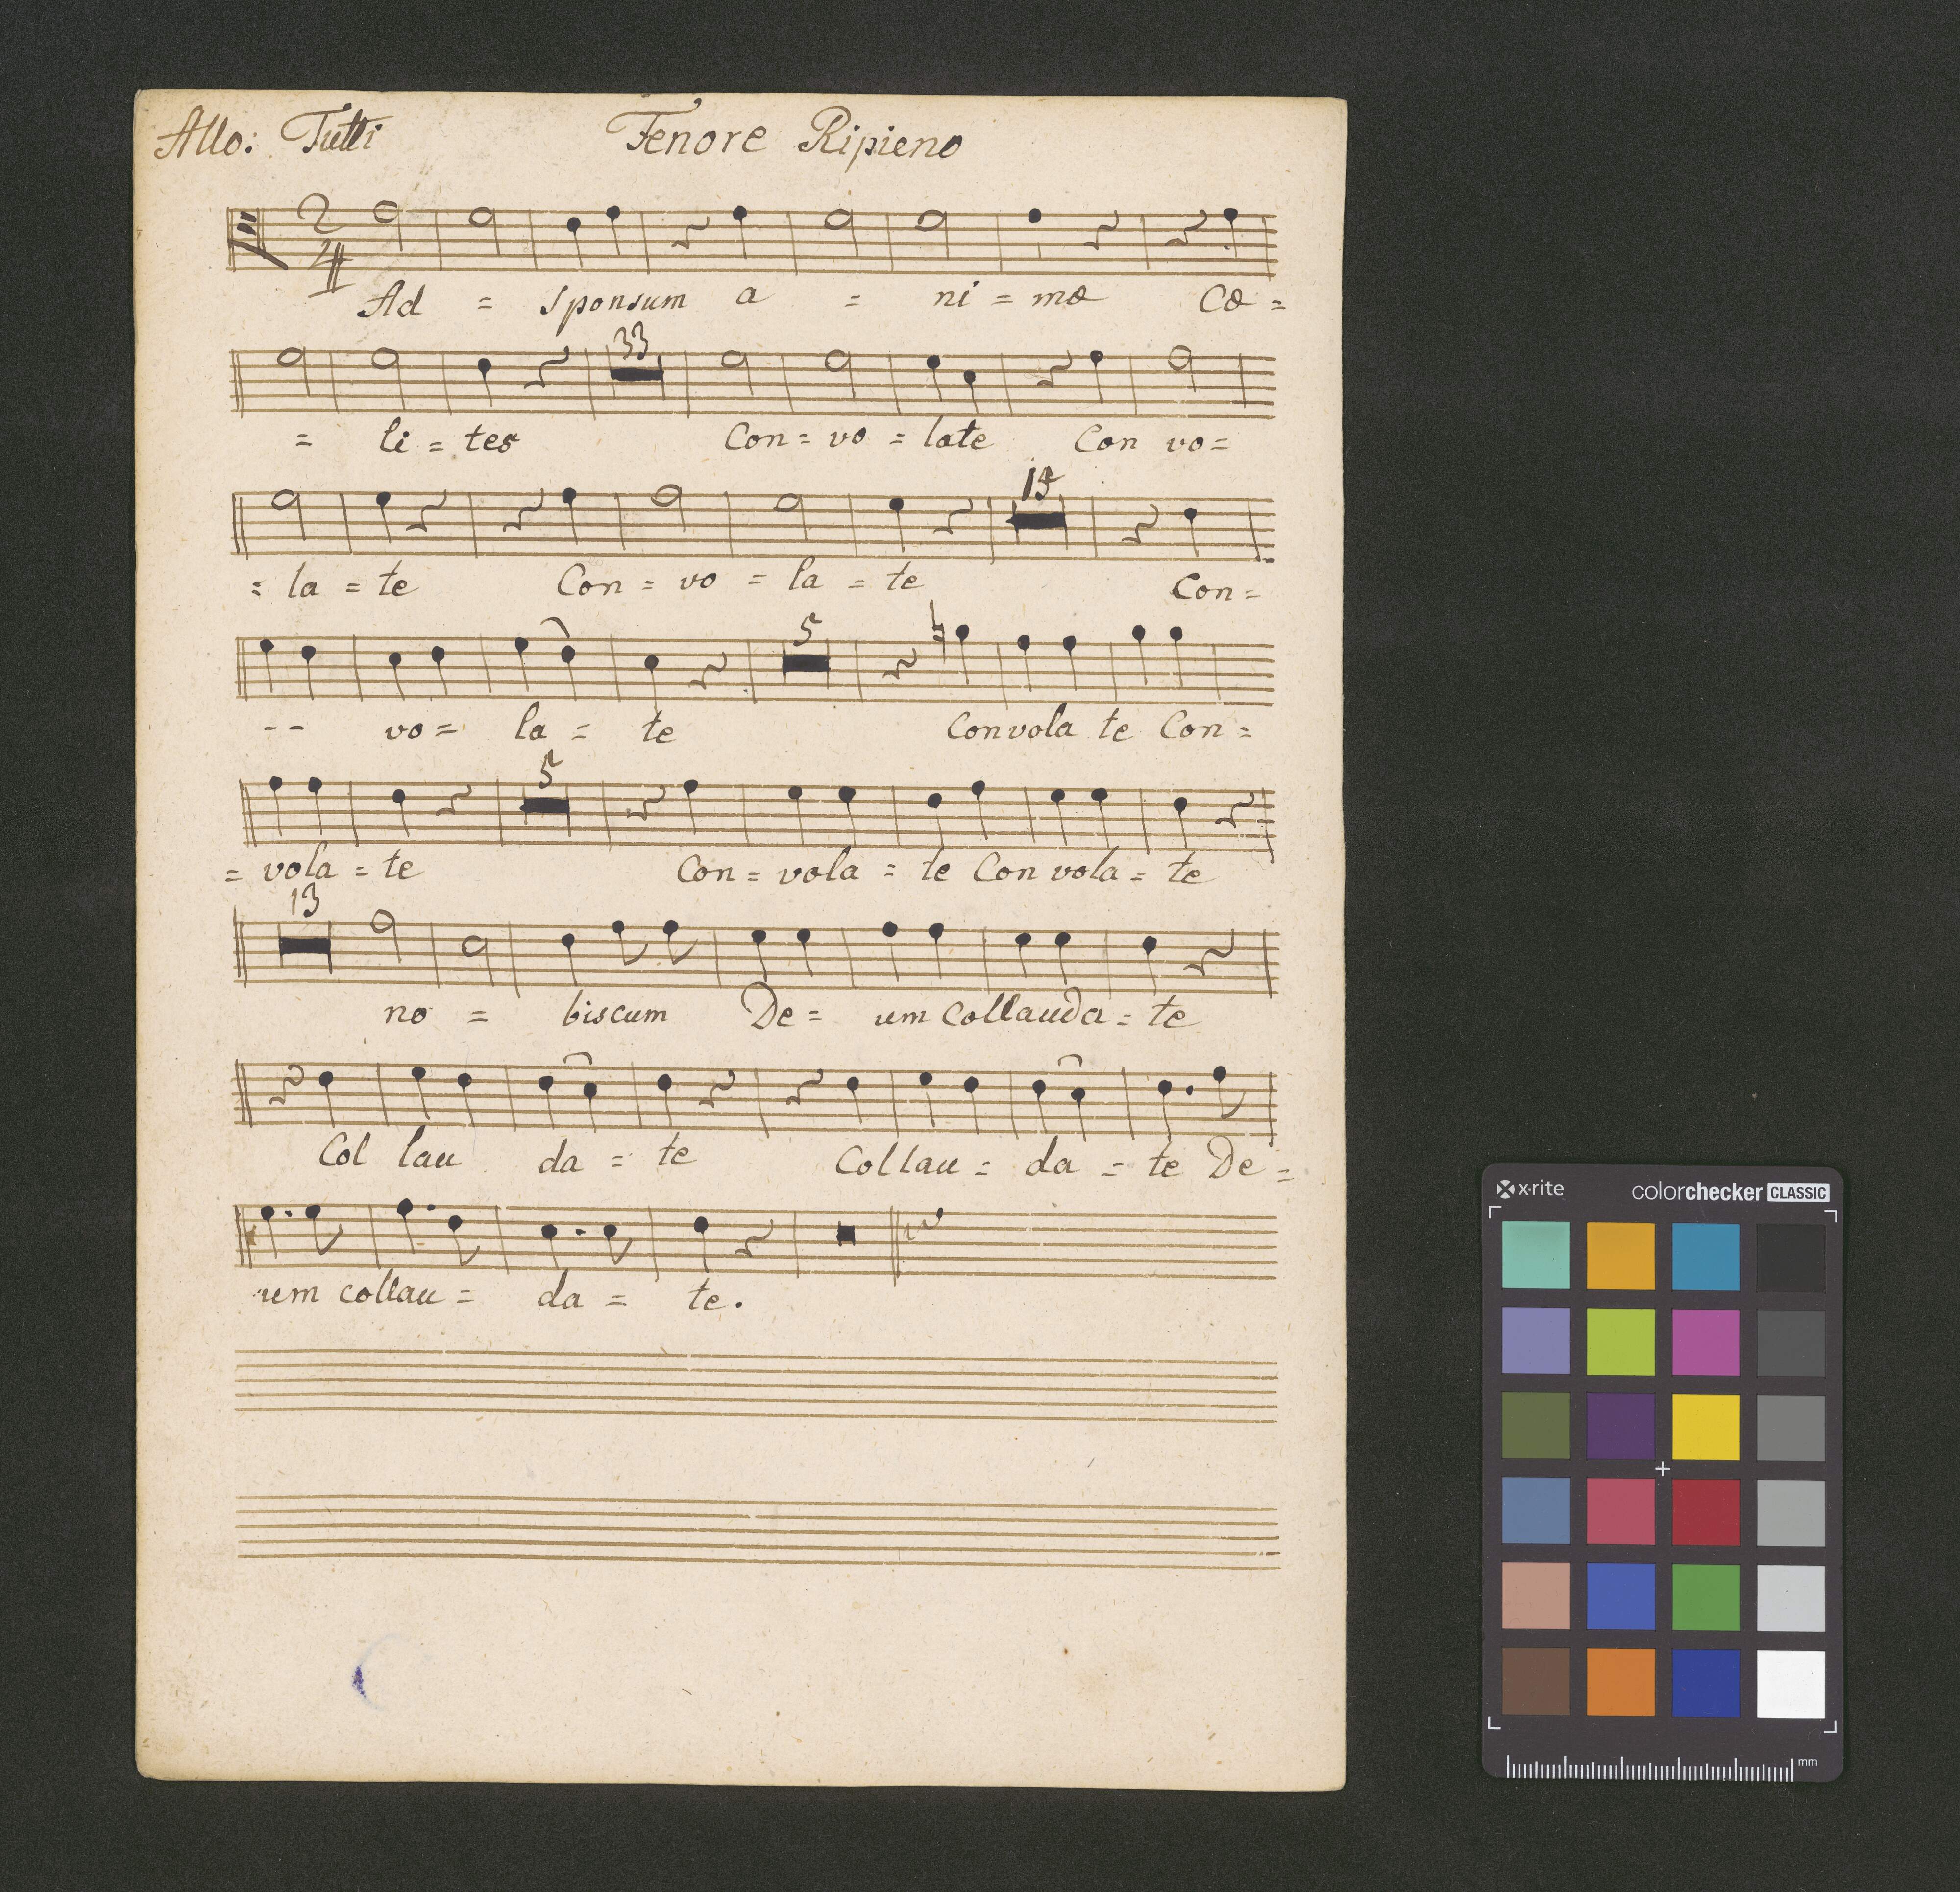 Allo: Tutti Tenore Ripieno
2
4
Ad = sponsum a = ni = mæ Cœ =
33
= li = tes Con = vo = late Con vo =
= la = te Con = vo = la = te Con =
5
-- vo = la = te Convola te Con =
5
= vola = te Con = vola = te Con vola = te
13
no = biscum De = um Collauda = te
Col lau da = te Collau = da = te De =
um collau = da = te.
x·rite colorchecker CLASSIC
mm